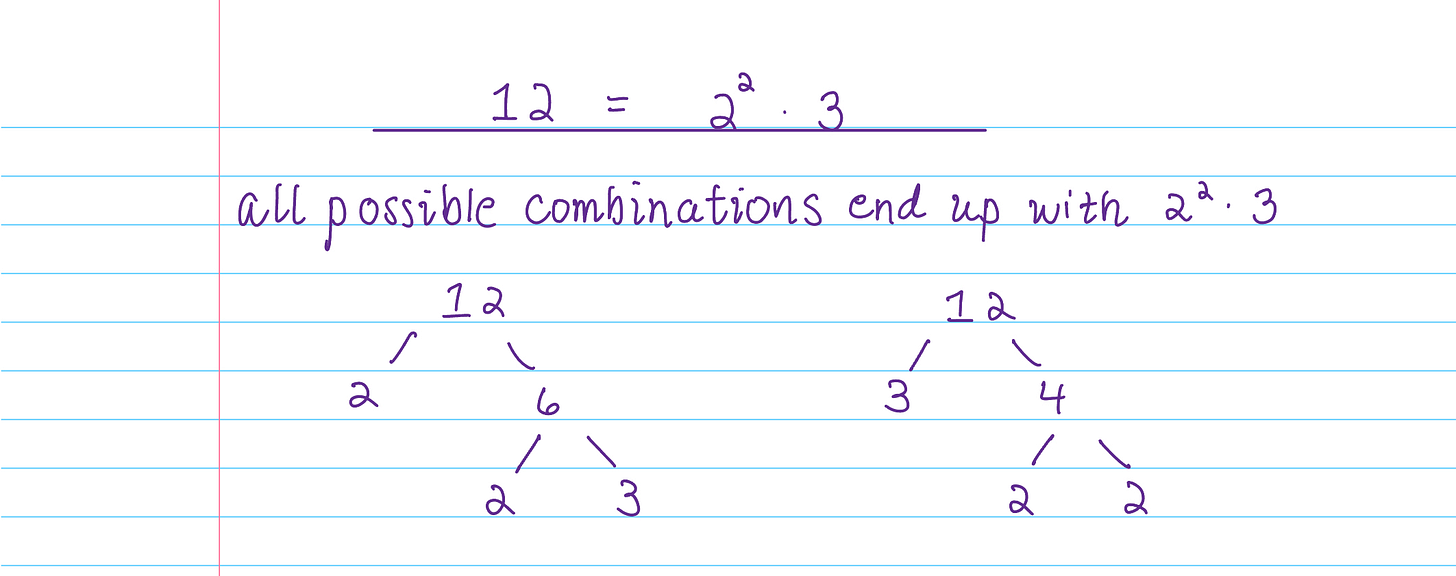 12 = 2² · 3
all possible combinations end up with 2² · 3
12 12
2 6 3 4
2 3 2 2